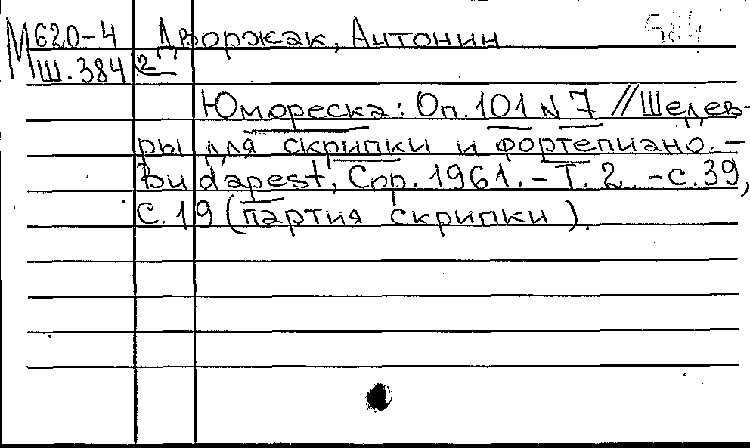 М 620-4 Дворжак, Антонин
Ш.384 2
Юмореска: Оп. 101 № 7 // Шедев-
ры для скрипки и фортепиано. –
Budapest, Cop. 1961. – Т. 2. – с. 39,
с. 19 (партия скрипки).